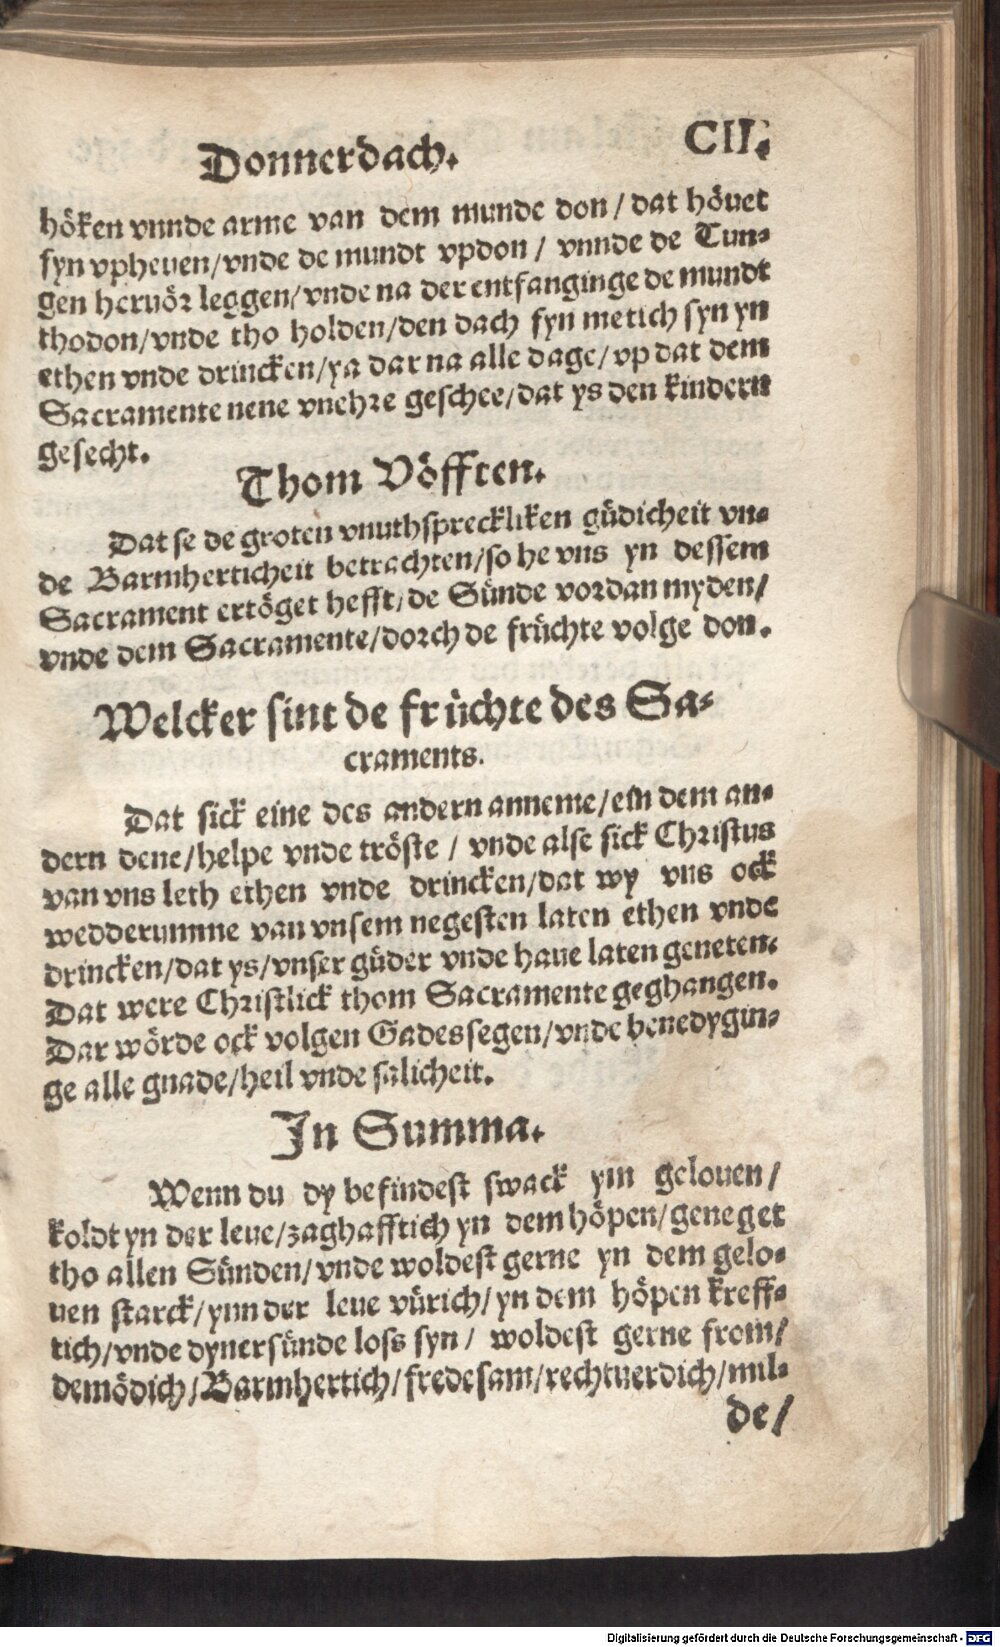 Donnerdach. CII.
höken vnnde arme van dem munde don / dat hövet
syn vpheuen/vnde de mundt vpdon / vnnde de Tun-
gen heruör leggen/vnde na der entfanginge de mundt
thodon/vnde tho holden/den dach syn metich syn yn
ethen vnde drincken/ya dar na alle dage/vp dat dem
Sacramente nene vnehre geschee/dat ys den kindern
gesecht.
Thom Vöfften.
Dat se de groten vnuthspreckliken güdicheit vn-
de Barmherticheit betrachten/so he vns yn dessem
Sacrament ertöget hefft/de Sünde vordan myden/
vnde dem Sacramente/dorch de früchte volge don.
Welcker sint de früchte des Sa-
craments.
Dat sick eine des andern anneme/ein dem an-
dern dene/helpe vnde tröste / vnde alse sick Christus
van vns leth ethen vnde drincken/dat wy vns ock
wedderumme van vnsem negesten laten ethen vnde
drincken/dat ys/vnser güder vnde haue laten geneten.
Dat were Christlick thom Sacramente geghangen.
Dar wörde ock volgen Gades segen/vnde benedygin-
ge alle gnade/heil vnde salicheit.
In Summa.
Wenn du dy befindest swack ym gelouen/
koldt yn der leue/zaghafftich yn dem höpen/geneget
tho allen Sünden/vnde woldest gerne yn dem gelo-
uen starck/ynn der leue vürich/yn dem höpen kreff-
tich/vnde dyner sünde loss syn / woldest gerne from/
demödich/Barmhertich/fredesam/rechtuerdich/mil-
de/
Digitalisierung gefördert durch die Deutsche Forschungsgemeinschaft - DFG